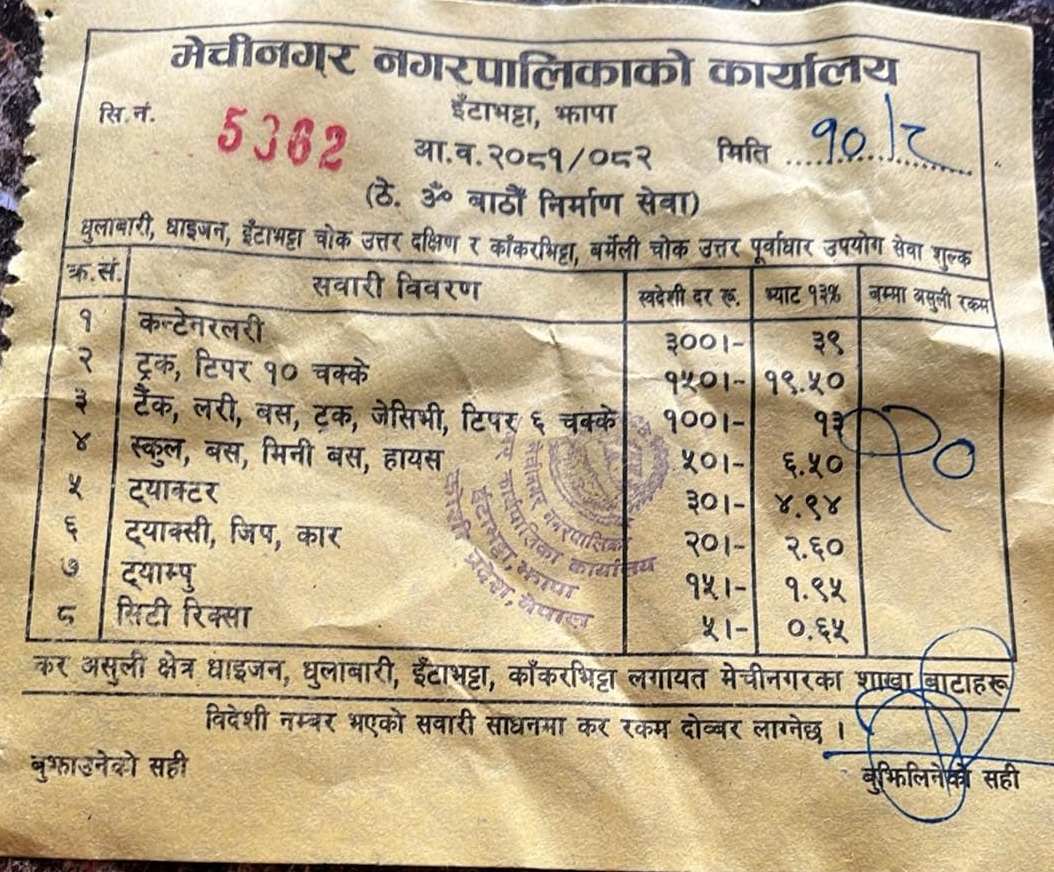 मेचीनगर नगरपालिकाको कार्यालय
सि.नं. 5362 इँटाभट्टा, झापा
आ.व.२०८१/०८२ मिति १०/८
(ठे. ॐ बाठौं निर्माण सेवा)
धुलाबारी, धाइजन, इँटाभट्टा चोक उत्तर दक्षिण र काँकरभिट्टा, बर्मेली चोक उत्तर पूर्वाधार उपयोग सेवा शुल्क
क्र.सं. सवारी विवरण स्वदेशी दर रू. भ्याट १३% जम्मा असुली रकम
१ कन्टेनरलरी ३००।- ३९
२ ट्रक, टिपर १० चक्के १५०।- १९.५०
३ टैंक, लरी, बस, ट्रक, जेसिभी, टिपर ६ चक्के १००।- १३
४ स्कुल, बस, मिनी बस, हायस ५०।- ६.५०
५ ट्याक्टर ३०।- ४.९४
६ ट्याक्सी, जिप, कार २०।- २.६०
७ ट्याम्पु १५।- १.९५
८ सिटी रिक्सा ५।- ०.६५
मेचीनगर नगरपालिका
नगर कार्यपालिका कार्यालय
ईटाभट्टा, झापा
कोशी प्रदेश, नेपाल
कर असुली क्षेत्र धाइजन, धुलाबारी, इँटाभट्टा, काँकरभिट्टा लगायत मेचीनगरका शाखा बाटाहरू
विदेशी नम्बर भएको सवारी साधनमा कर रकम दोब्बर लाग्नेछ ।
बुझाउनेको सही बुझिलिनेको सही